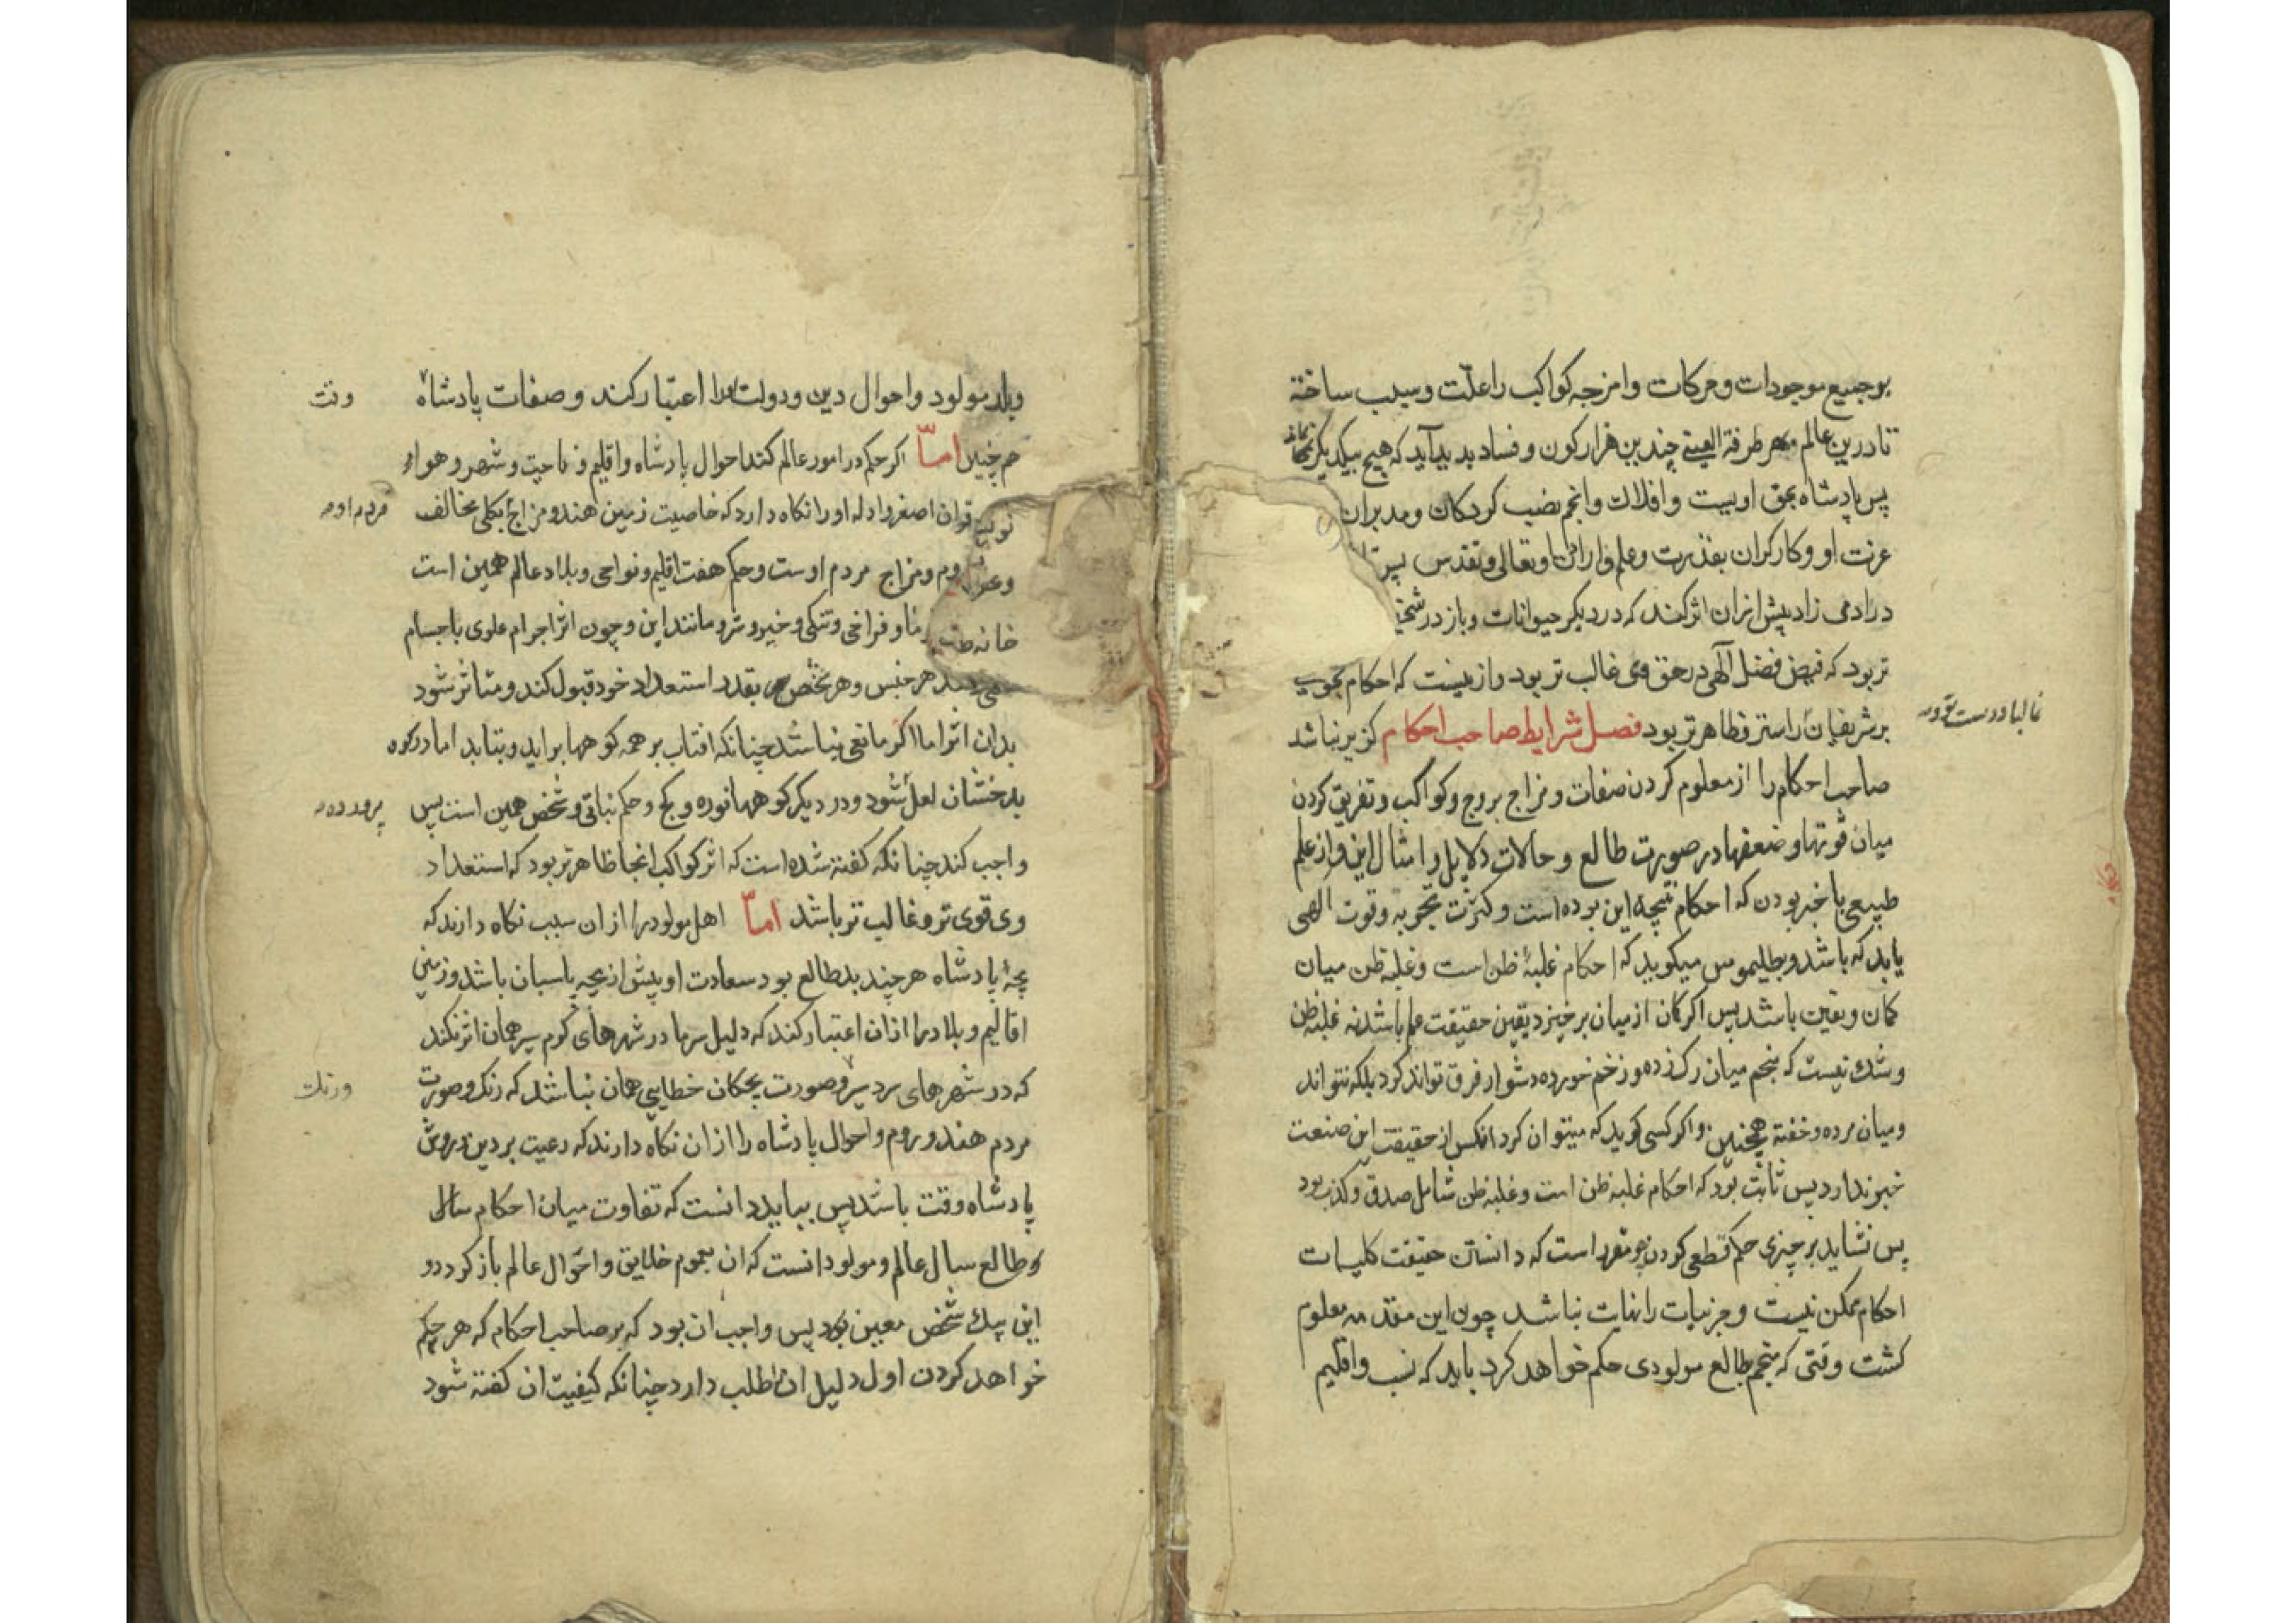 بر جمیع موجودات و حرکات و امزجه کواکب را علّت و سبب ساخته
تا درین عالم بهر طرفة العینے چندین هزار کون و فساد پدید آید که هیچ بیکدیکر نماند
پس پادشاه بحق اوست و افلاك و انجم نصب کردکان و مدبران
عزت او و کارکران بقدرت و علم و ارادت او تعالی و تقدس
در ادمی زاد بیش ازان اثر کند که در دیکر حیوانات و باز در
تر بود که فیض فضل آلهی در حق وی غالب تر بود و ازینست که احکام نجوم
بر شریفان راستر و ظاهرتر بود فصل شرایط صاحب احکام کزیر نباشد
غالبا درست تر بود
صاحب احکام را از معلوم کردن صفات و مزاج بروج و کواکب و تفریق کردن
میان قوتها و ضعفها در صورت طالع و حالات دلایل و امثال این و از علم
طبیعی با خبر بودن که احکام نتیجه این بوده است و کثرت تجربه و قوت الهی
باید که باشد و بطلیموس میکوید که احکام غلبهٔ ظن است و غلبه ظن میان
کمان و یقین باشد پس اکر کمان از میان برخیزد یقین حقیقت علم باشد نه غلبه ظن
و شك نیست که منجم میان رك زده و زخم خورده دشوار فرق تواند کرد بلکه نتواند
و میان مرده و خفته همچنین و اکر کسی کوید که میتوان کرد انکس از حقیقت این صنعت
خبر ندارد پس ثابت بود که احکام غلبه ظن است و غلبه ظن شامل صدق و کذب بود
پس نشاید بر چیزی حکم قطعی کردن و مقرر است که دانستن حقیقت کلیات
احکام ممکن نیست و جزئیات را نهایت نباشد چون این مقدمه معلوم
کشت وقتی که منجم بطالع مولودی حکم خواهد کرد باید که نسب و اقلیم
و بلد مولود و احوال دین و دولت را اعتبار کند و صفات پادشاه
وقت
همچنین امّا اکر حکم در امور عالم کند احوال پادشاه و اقلیم و ناحیت و شهر و هواء
قران اصغر و ادله او را نکاه دارد که خاصیت زمین هند و مزاج بکلی مخالف
مردم او
روم و مزاج مردم اوست و حکم هفت اقلیم و نواحی و بلاد عالم همین است
خانه و فراخی و تنکی و خیر و شر و مانند این و چون اثر اجرام علوی باجسام
هر جنس و هر شخص بقدر استعداد خود قبول کند و متاثر شود
بدان اثر اما اکر مانعی نباشد چنانکه افتاب بر همه کوهها براید و بتابد اما در کوه
بدخشان لعل شود و در دیکر کوهها نوره و کج و حکم نباتی و شخص همین است پس
پرورده
واجب کند چنانکه کفته شده است که اثر کواکب انجا ظاهرتر بود که استعداد
وی قوی تر و غالب تر باشد امّا اهل مولود را از ان سبب نکاه دارند که
بچهٔ پادشاه هر چند بد طالع بود سعادت او بیش از بچه پاسبان باشد و زمین
اقالیم و بلاد را ازان اعتبار کند که دلیل سرما در شهرهای کرم سیر همان اثر نکند
که در شهرهای سردسیر و صورت بچکان خطایی همان نباشد که رنك و صورت
ورنك
مردم هند و روم و احوال پادشاه را ازان نکاه دارند که رعیت بر دین و روش
پادشاه وقت باشد پس بباید دانست که تفاوت میان احکام سال
و طالع سال عالم و مولود انست که ان بعموم خلایق و احوال عالم باز کردد و
این بیك شخص معین بود پس واجب ان بود که بر صاحب احکام که هر حکم
خواهد کردن اول دلیل ان طلب دارد چنانکه کیفیت ان کفته شود